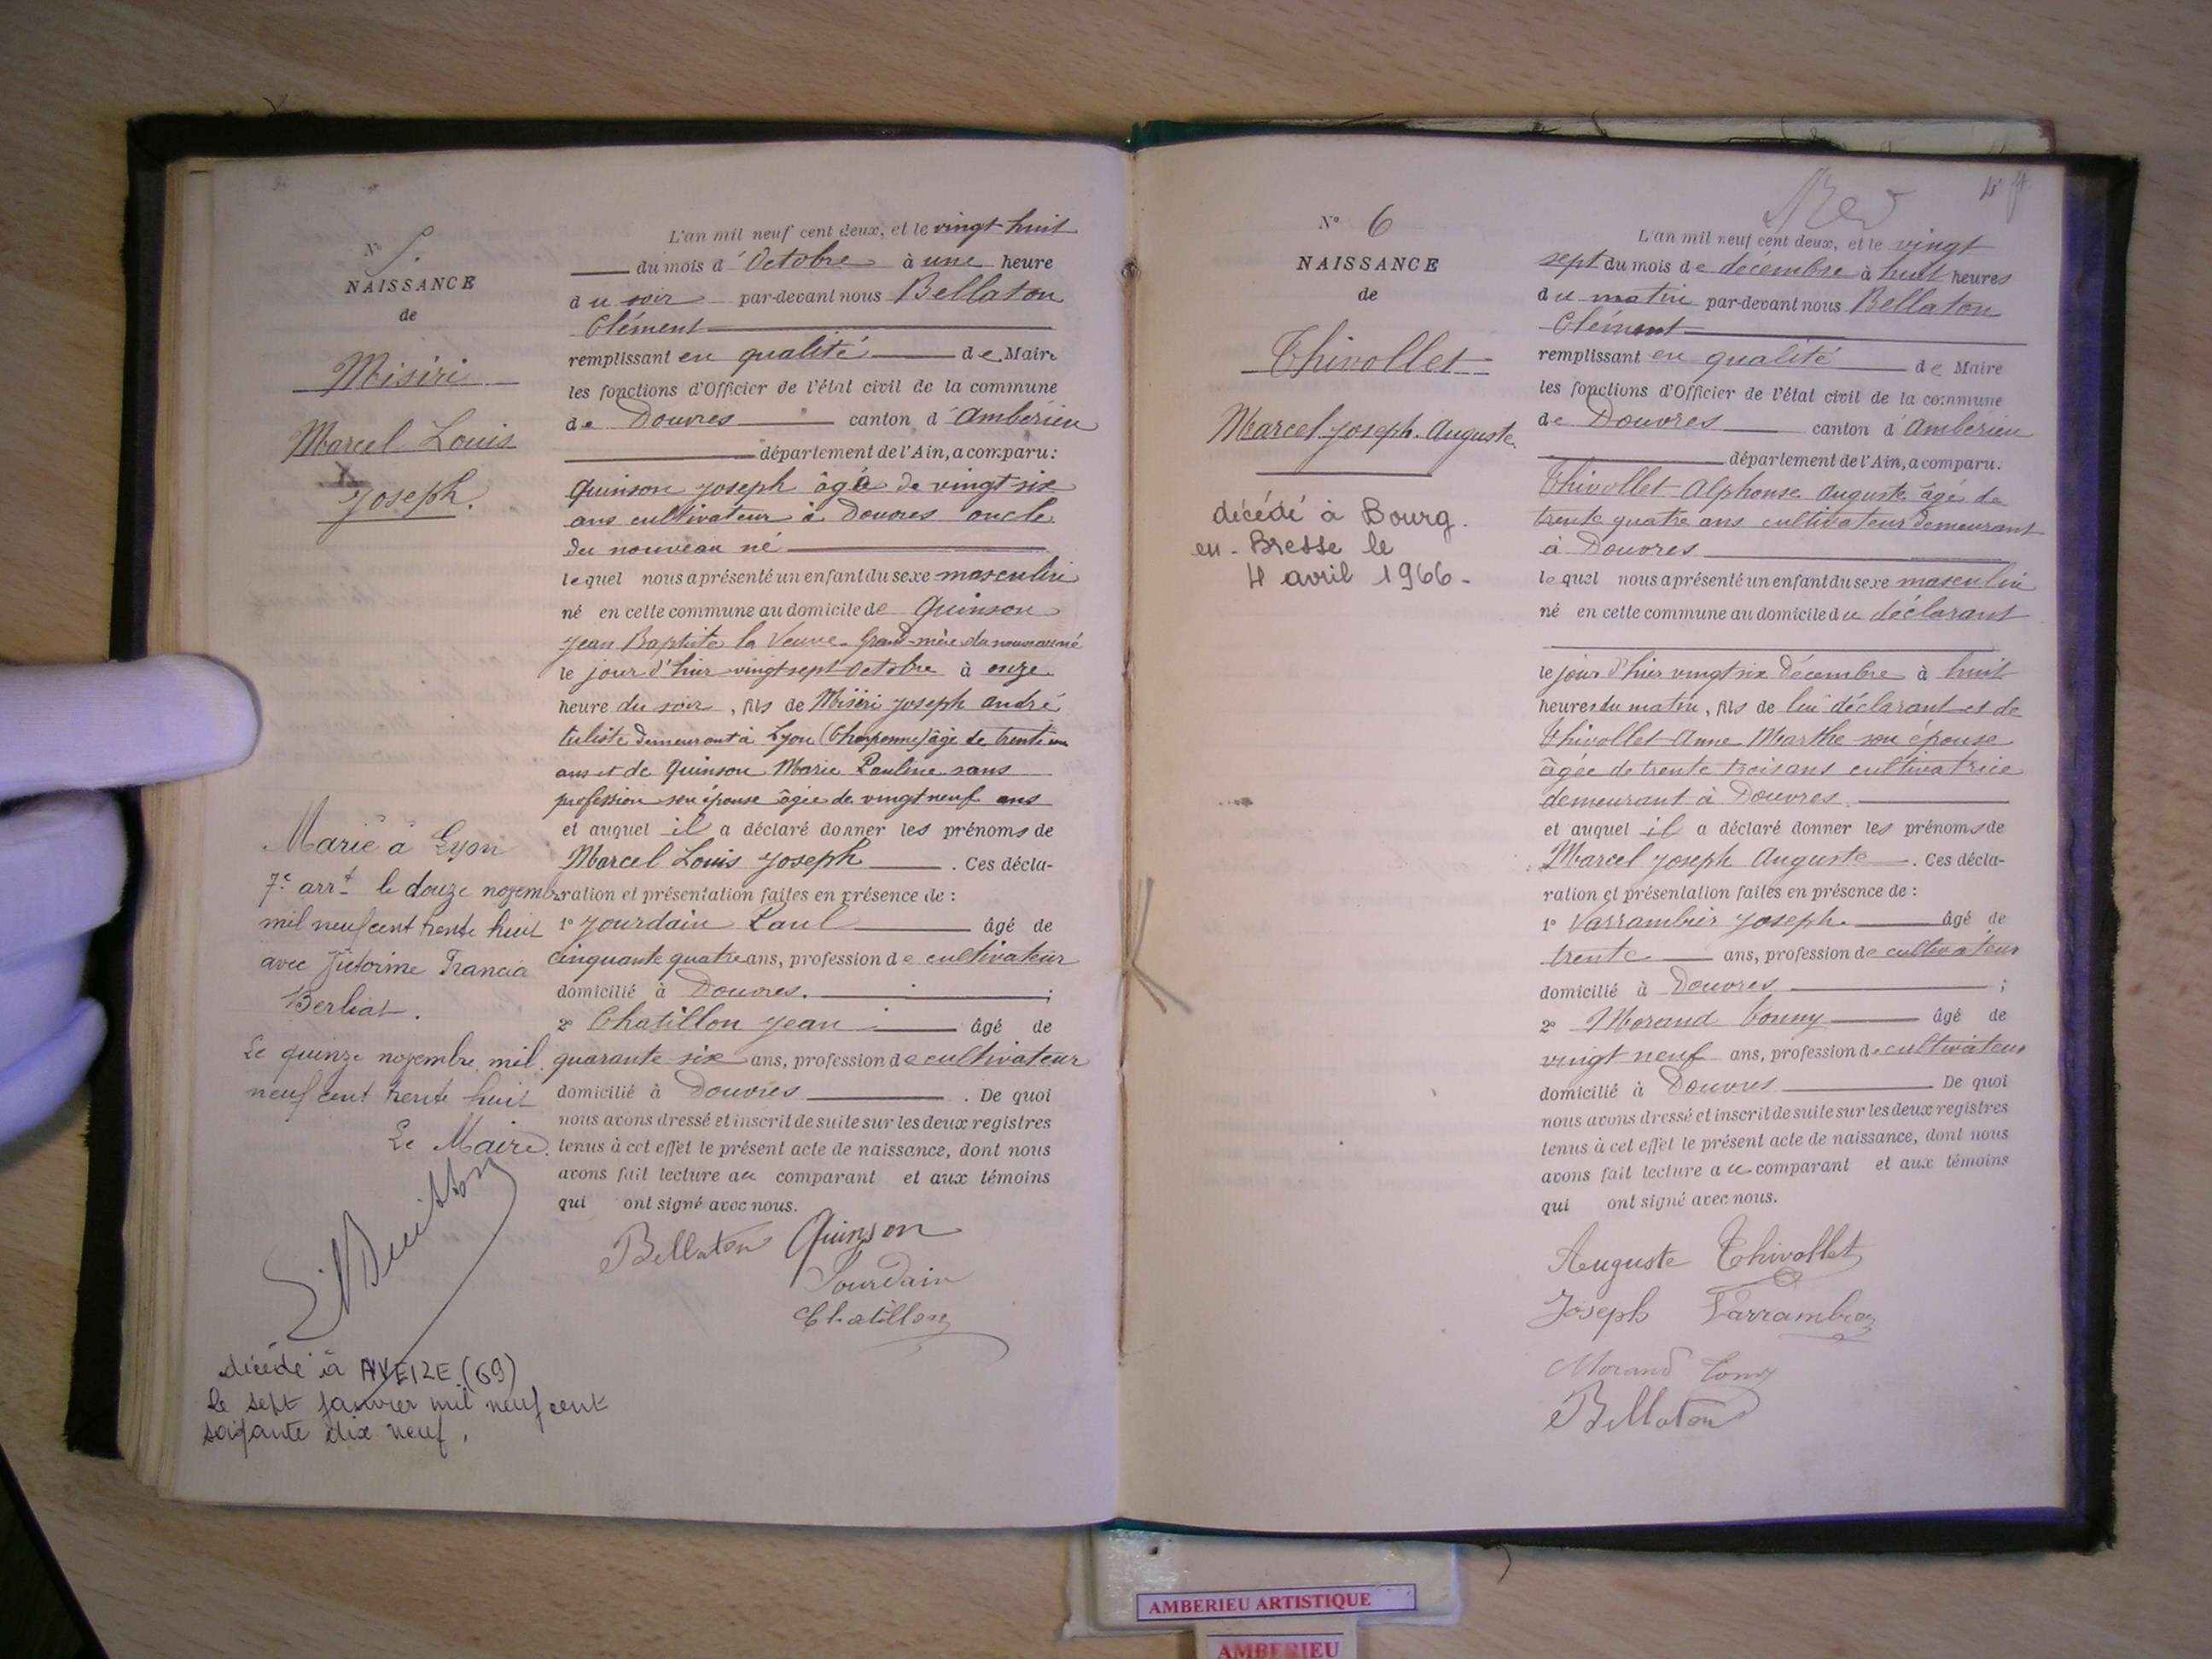 N° 5.
NAISSANCE
de
Misiri
Marcel Louis
Joseph.
Marié à Lyon
7e arrt le douze novembre
mil neuf cent trente huit
avec Francia
Berliat.
Le quinze novembre mil
neuf cent trente huit
Le Maire.
décédé à AVEIZE (69)
le sept janvier mil neuf cent
soixante dix neuf.
L'an mil neuf cent deux, et le vingt huit
du mois d'Octobre à une heure
du soir par-devant nous Bellaton
Clément
remplissant en qualité de Maire
les fonctions d'Officier de l'état civil de la commune
de Douvres canton d'Ambérieu
département de l'Ain, a comparu:
Quinson Joseph âgé de vingt six
ans cultivateur à Douvres oncle
du nouveau né
lequel nous a présenté un enfant du sexe masculin
né en cette commune au domicile de Quinson
Jean Baptiste la Veuve Grand-mère du nouveau né
le jour d'hier vingt sept Octobre à onze
heure du soir, fils de Misiri Joseph André
tuliste demeurant à Lyon (Charpenne) âgé de trente un
ans et de Quinson Marie Pauline sans
profession son épouse âgée de vingt neuf ans
et auquel il a déclaré donner les prénoms de
Marcel Louis Joseph. Ces décla-
ration et présentation faites en présence de :
1° Jourdain Paul âgé de
cinquante quatre ans, profession de cultivateur
domicilié à Douvres. ;
2° Chatillon Jean âgé de
quarante six ans, profession de cultivateur
domicilié à Douvres. De quoi
nous avons dressé et inscrit de suite sur les deux registres
tenus à cet effet le présent acte de naissance, dont nous
avons fait lecture au comparant et aux témoins
qui ont signé avec nous.
Bellaton Quinson
Jourdain
Chatillon
N° 6
NAISSANCE
de
Thivollet
Marcel Joseph. Auguste
décédé à Bourg.
en-Bresse le
4 avril 1966-
L'an mil neuf cent deux, et le vingt
sept du mois de décembre à huit heures
du matin par-devant nous Bellaton
Clément
remplissant en qualité de Maire
les fonctions d'Officier de l'état civil de la commune
de Douvres canton d'Ambérieu
département de l'Ain, a comparu.
Thivollet Alphonse Auguste âgé de
trente quatre ans cultivateur demeurant
à Douvres
lequel nous a présenté un enfant du sexe masculin
né en cette commune au domicile du déclarant
le jour d'hier vingt six décembre à huit
heures du matin, fils de lui déclarant et de
Thivollet Anne Marthe son épouse
âgée de trente trois ans cultivatrice
demeurant à Douvres.
et auquel il a déclaré donner les prénoms de
Marcel Joseph Auguste. Ces décla-
ration et présentation faites en présence de :
1° Varrambier Joseph. âgé de
trente ans, profession de cultivateur
domicilié à Douvres ;
2° Morand Conny âgé de
vingt neuf ans, profession de cultivateur
domicilié à Douvres De quoi
nous avons dressé et inscrit de suite sur les deux registres
tenus à cet effet le présent acte de naissance, dont nous
avons fait lecture au comparant et aux témoins
qui ont signé avec nous.
Auguste Thivollet
Joseph Varrambier
Morand
Bellaton
AMBERIEU ARTISTIQUE
AMBERIEU